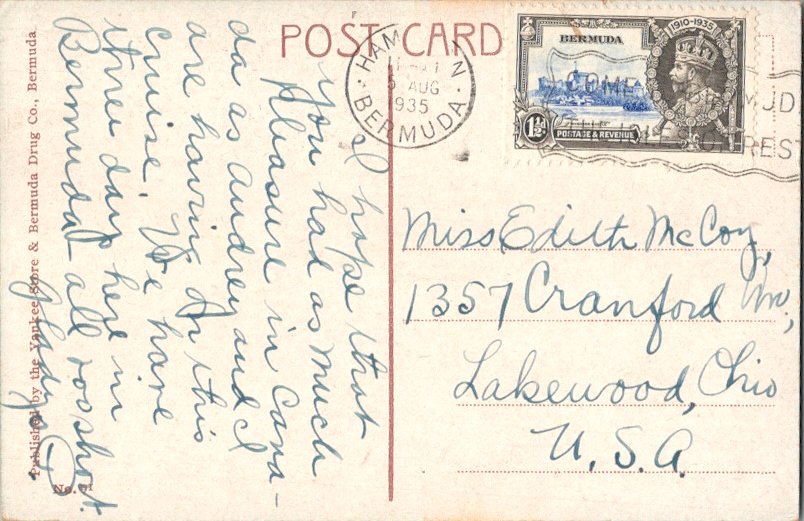 POST CARD
HAMILTON
5 AUG
1935
BERMUDA
1910-1935
BERMUDA
1½D
POSTAGE & REVENUE
COME
I hope that
you had as much
pleasure in Cana-
da as Audrey and I
are having on this
cruise. We have
three days here in
Bermuda - all too short.
Gladys
Miss Edith McCoy,
1357 Cranford Av.,
Lakewood, Ohio
U.S.A.
Published by the Yankee Store & Bermuda Drug Co., Bermuda.
No. 61